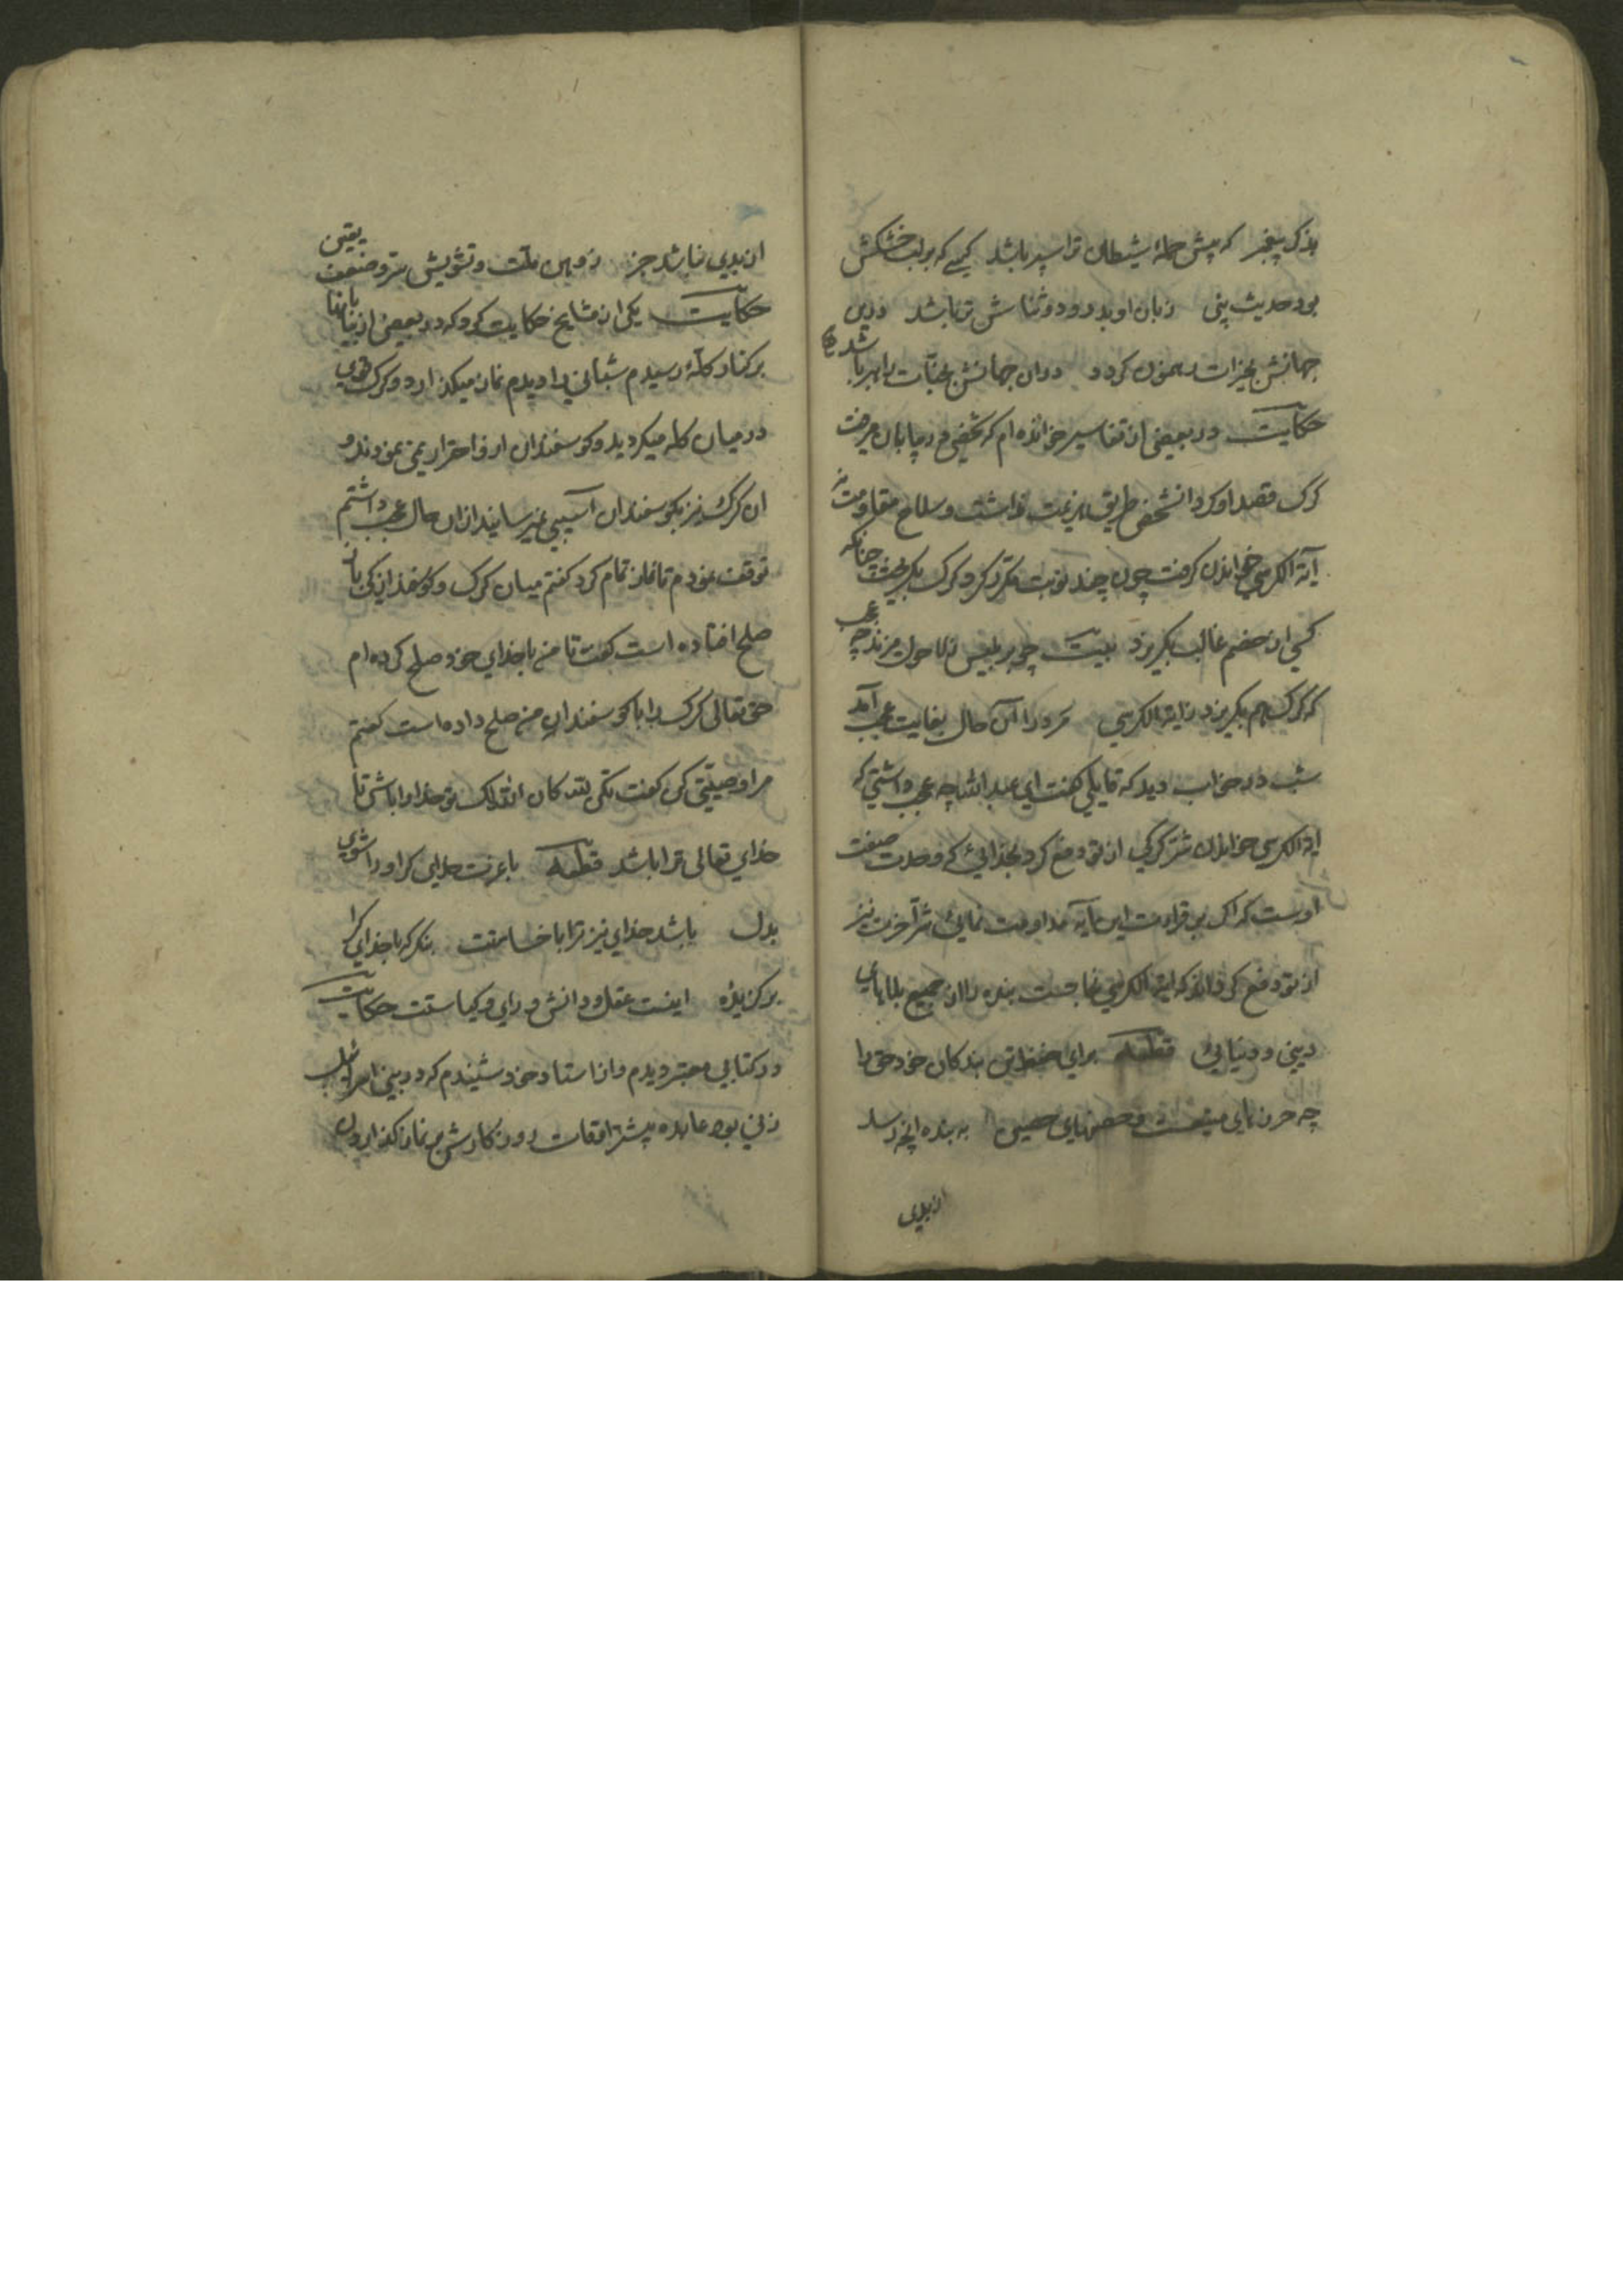 بذکر پیغمبر که پیش حملهٔ شیطان ترا سپر باشد کسی که بر لب خشکش
بود حدیث نبی زبان او بدرود و ثناش تر باشد درین
جهانش بخیرات رهنمون کردد دران جهانش بجنات راهبر باشد
حکایت در بعضی از تفاسیر خوانده ام که شخصی در بیابان میرفت
کرک قصد او کرد آنشخص طریق هزیمت نداشت و سلاح مقاومت نه
آیة الکرسی خواندن کرفت چون چند نوبت مکرر کرد کرک بکریخت چنانکه
کسی از خصم غالب بکریزد بیت چو ابلیس زلاحول میرند چه عجب
که کرک هم بکریزد زایة الکرسی مرد را آن حال بغایت عجب آمد
شب در خواب دید که قایلی کفت ای عبد الله چه عجب داشتی که
ایة الکرسی خواندن شر کرکی از تو دفع کرد بخدائی که وحدت صفت
اوست که اکر بر قراءت این آیه مداومت نمائی شر آخرت نیز
از تو دفع کرداند که ایة الکرسی نجاتست بنده را از جمیع بلاهای
دینی و دنیایی قطعه برای حفظ تن بندکان خود حق را
چه حرزهای متینست و حصنهای حصین به بنده آنچه رسد
از بدی
از بدی نباشد جز زوهن ملت و تشویش سر و ضعف یقین
حکایت یکی از مشایخ حکایت کرد که در بعضی از بیابانها
بر کنار کلهٔ رسیدم شبانی را دیدم نماز میکذارد و کرک قوی
در میان کله میکردید و کوسفندان ازو احتراز نمی نمودند و
ان کرک نیز بکوسفندان آسیبی نمیرسانید ازان حال عجب داشتم
توقف نمودم تا نماز تمام کرد کفتم میان کرک و کوسفندان کی باز
صلح افتاده است کفت تا من با خدای خود صلح کرده ام
حق تعالی کرک را با کوسفندان من صلح داده است کفتم
مرا وصیتی کن کفت تکن لله کان الله لک تو خدا را باش تا
خدای تعالی ترا باشد قطعه با عزت خدای کر او را شوی
بدل باشد خدای نیز ترا با خسامت بنکر که با خدای کرا
برکزیدهٔ اینست عقل و دانش و رای و کیاستت حکایت
در کتابی معتبر دیدم و از استاد خود شنیدم که در بنی اسرائیل
زنی بود عابده بیشتر اوقات روزکارش بر نماز کذاردن